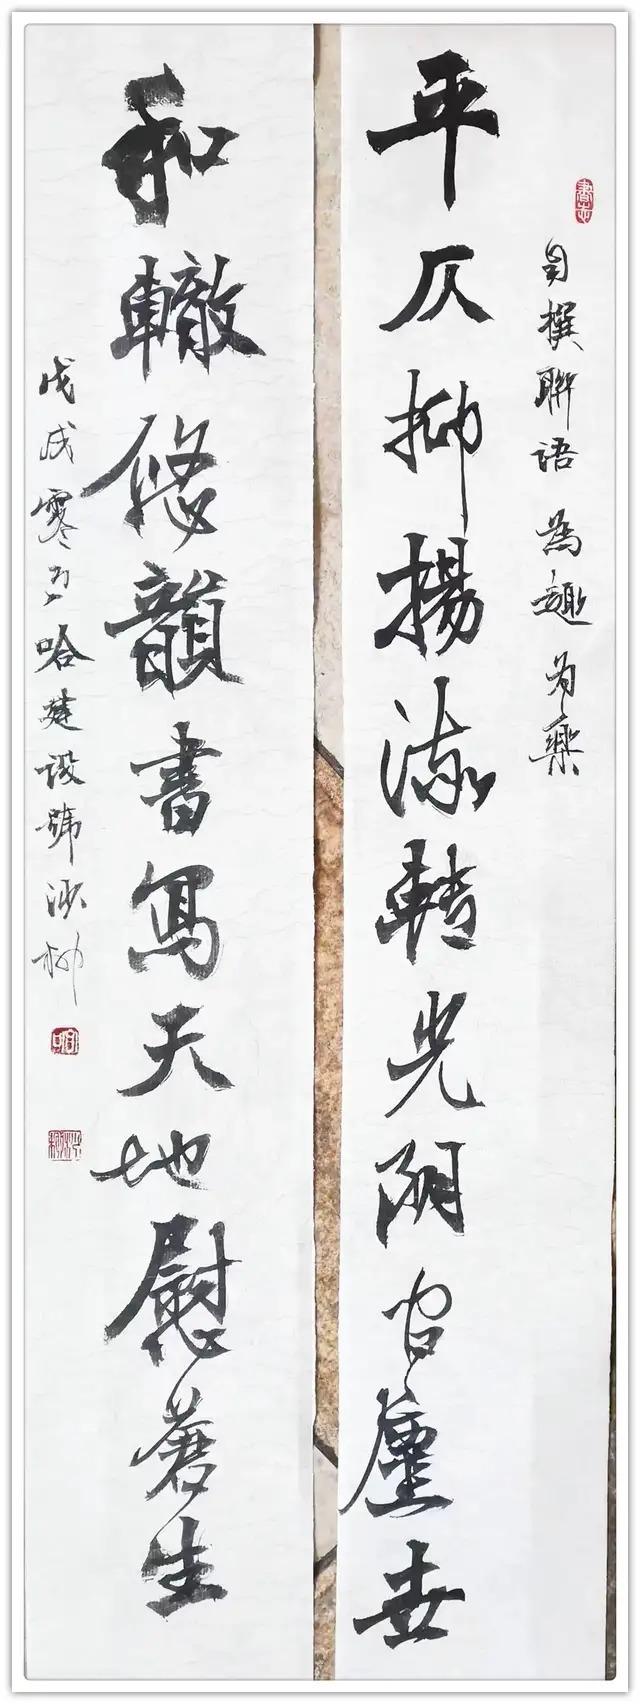 自撰聯語為趣为樂
平仄抑揚流轉光陰塵世
和轍悠韻書寫天地慰蒼生
戊戌寒月哈建设號沙柳